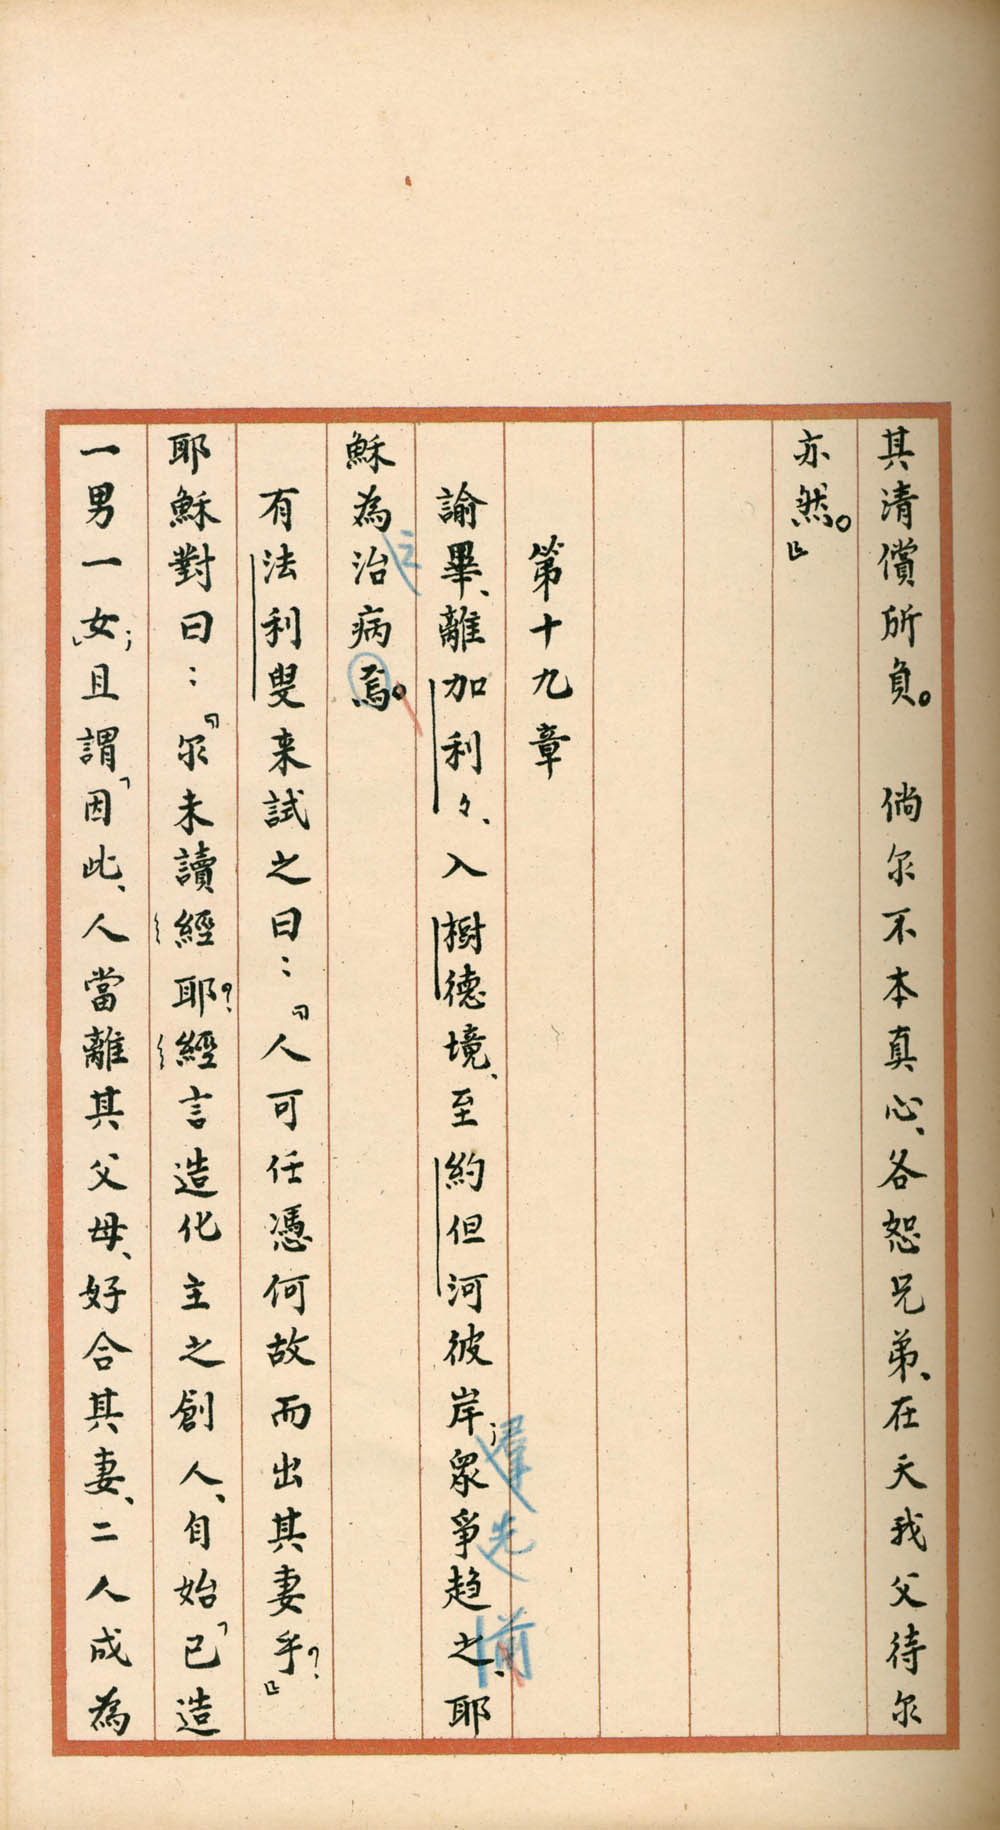 其清償所負。　倘尔不本真心、各恕兄弟、在天我父待尔
亦然。』
第十九章
諭畢、離加利々、入樹德境、至約但河彼岸；眾爭趋之、耶
穌為治病焉。
有法利叟来試之曰：『人可任憑何故而出其妻乎？』
耶穌對曰：『尔未讀經耶？經言造化主之創人、自始「已造
一男一女」；且謂「因此、人當離其父母、好合其妻、二人成為
羣先